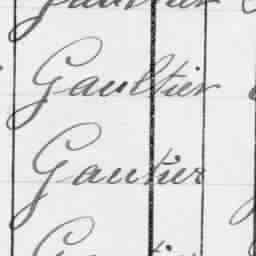 Gaultier
Gautier